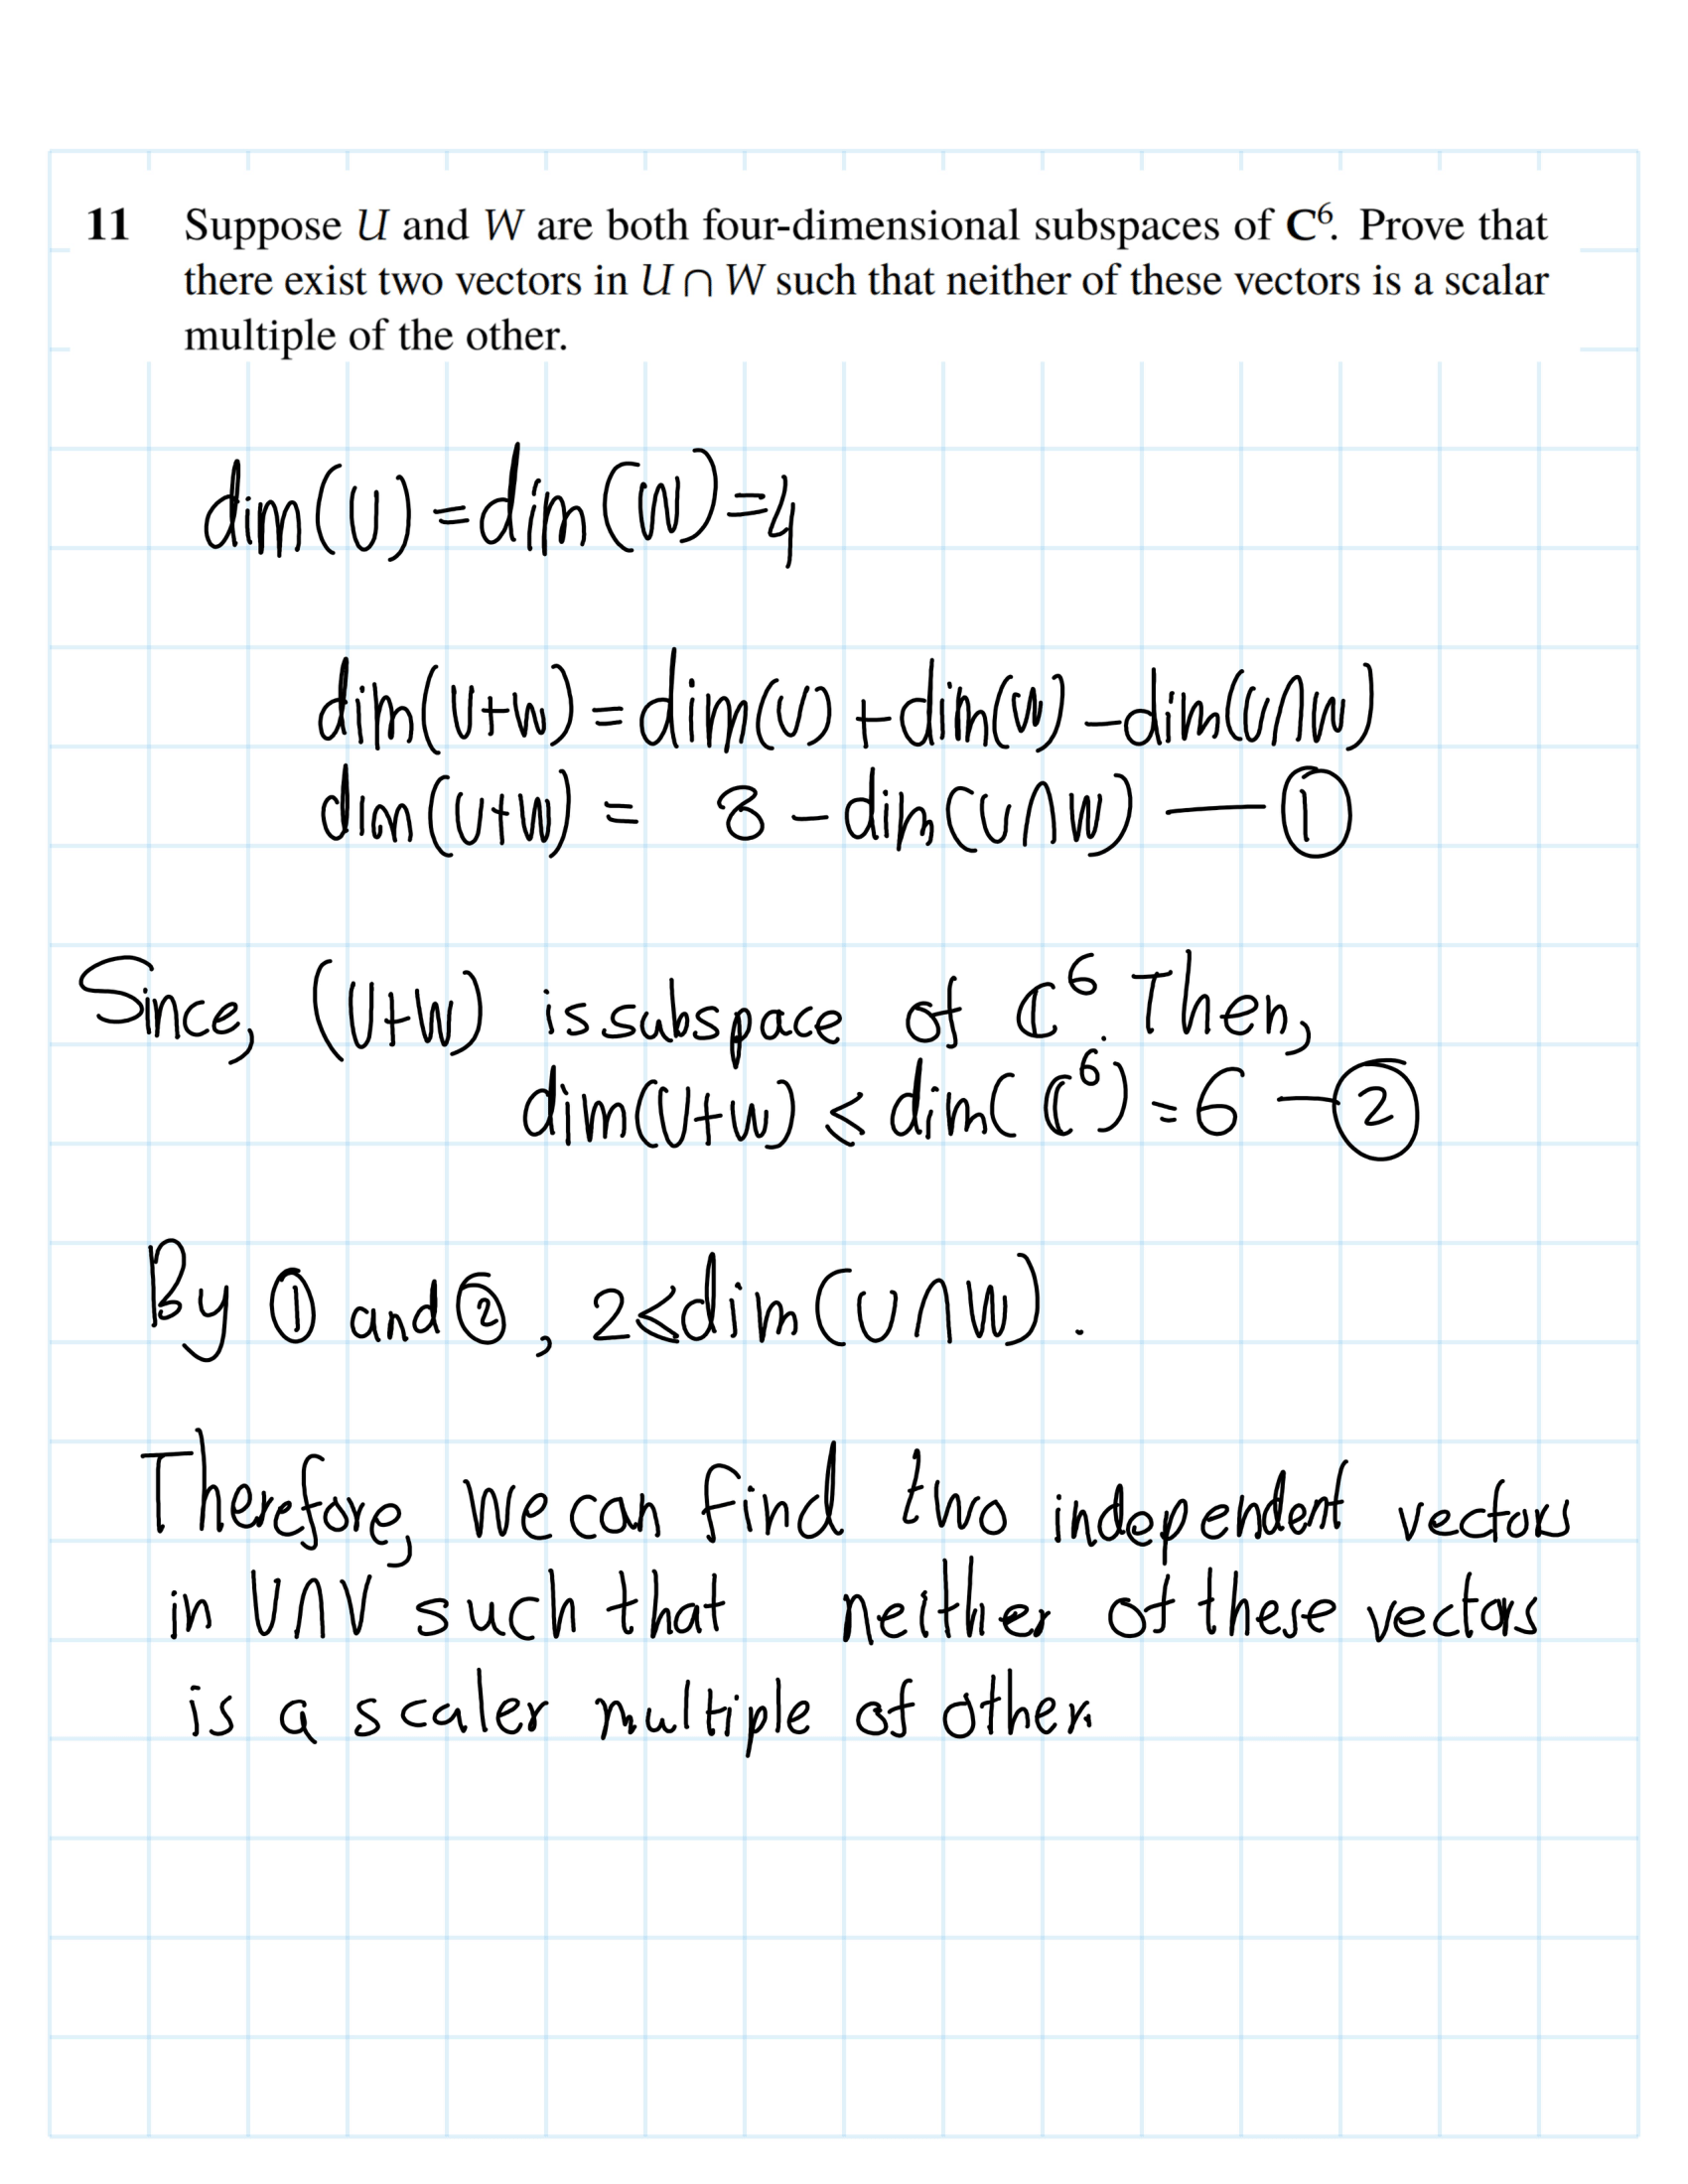 11 Suppose U and W are both four-dimensional subspaces of C⁶. Prove that
there exist two vectors in U ∩ W such that neither of these vectors is a scalar
multiple of the other.
dim(U) = dim(W) = 4
dim(U+W) = dim(U) + dim(W) - dim(U∩W)
dim(U+W) = 8 - dim(U∩W) — ①
Since, (U+W) is subspace of ℂ⁶. Then,
dim(U+W) ≤ dim(ℂ⁶) = 6 — ②
By ① and ②, 2 ≤ dim(U∩W).
Therefore, we can find two independent vectors
in U∩V such that neither of these vectors
is a scaler multiple of other.